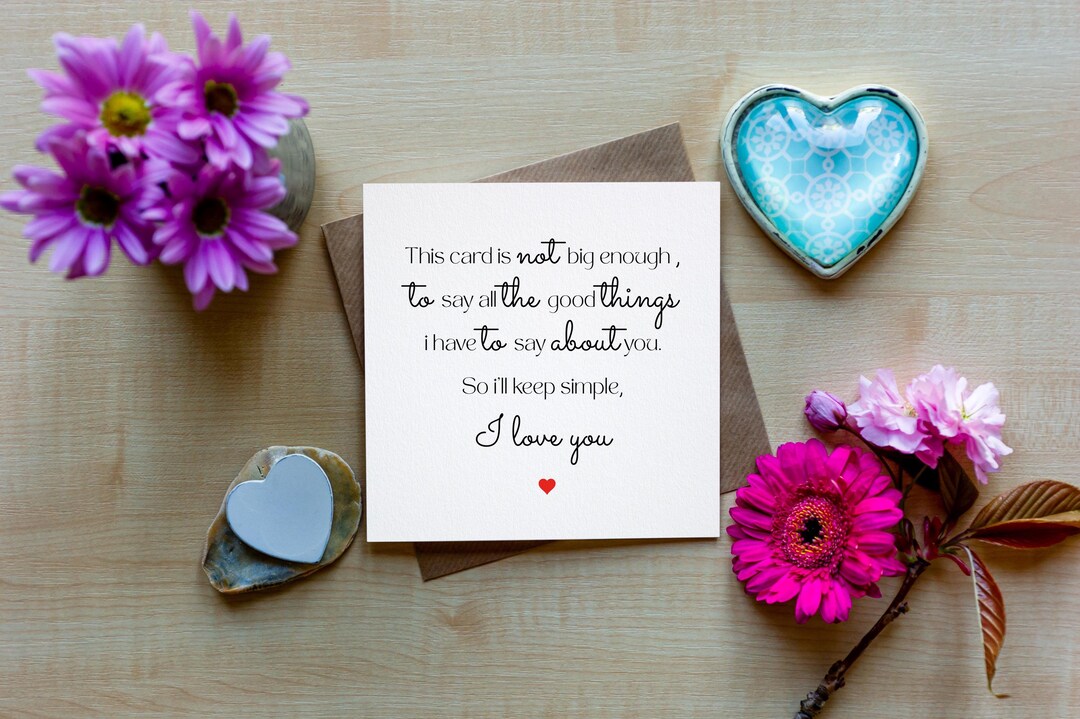 This card is not big enough ,
to say all the good things
i have to say about you.
So i'll keep simple,
I love you